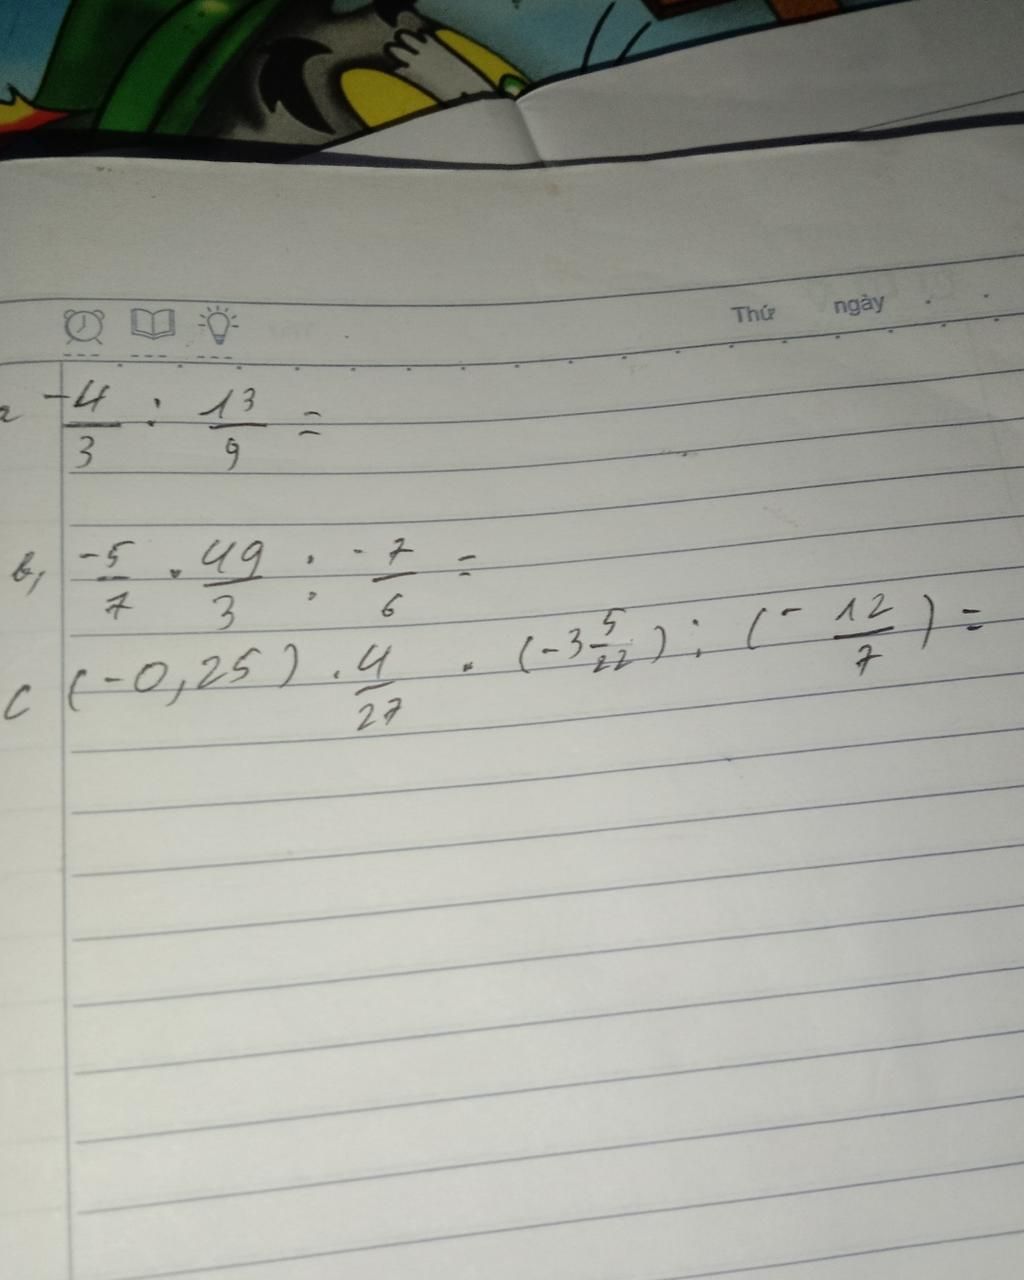 Thứ ngày
a -4/3 : 13/9 =
b, -5/7 . 49/3 : -7/6 =
c (-0,25) . 4/27 . (-3 5/22) : (- 12/7) =